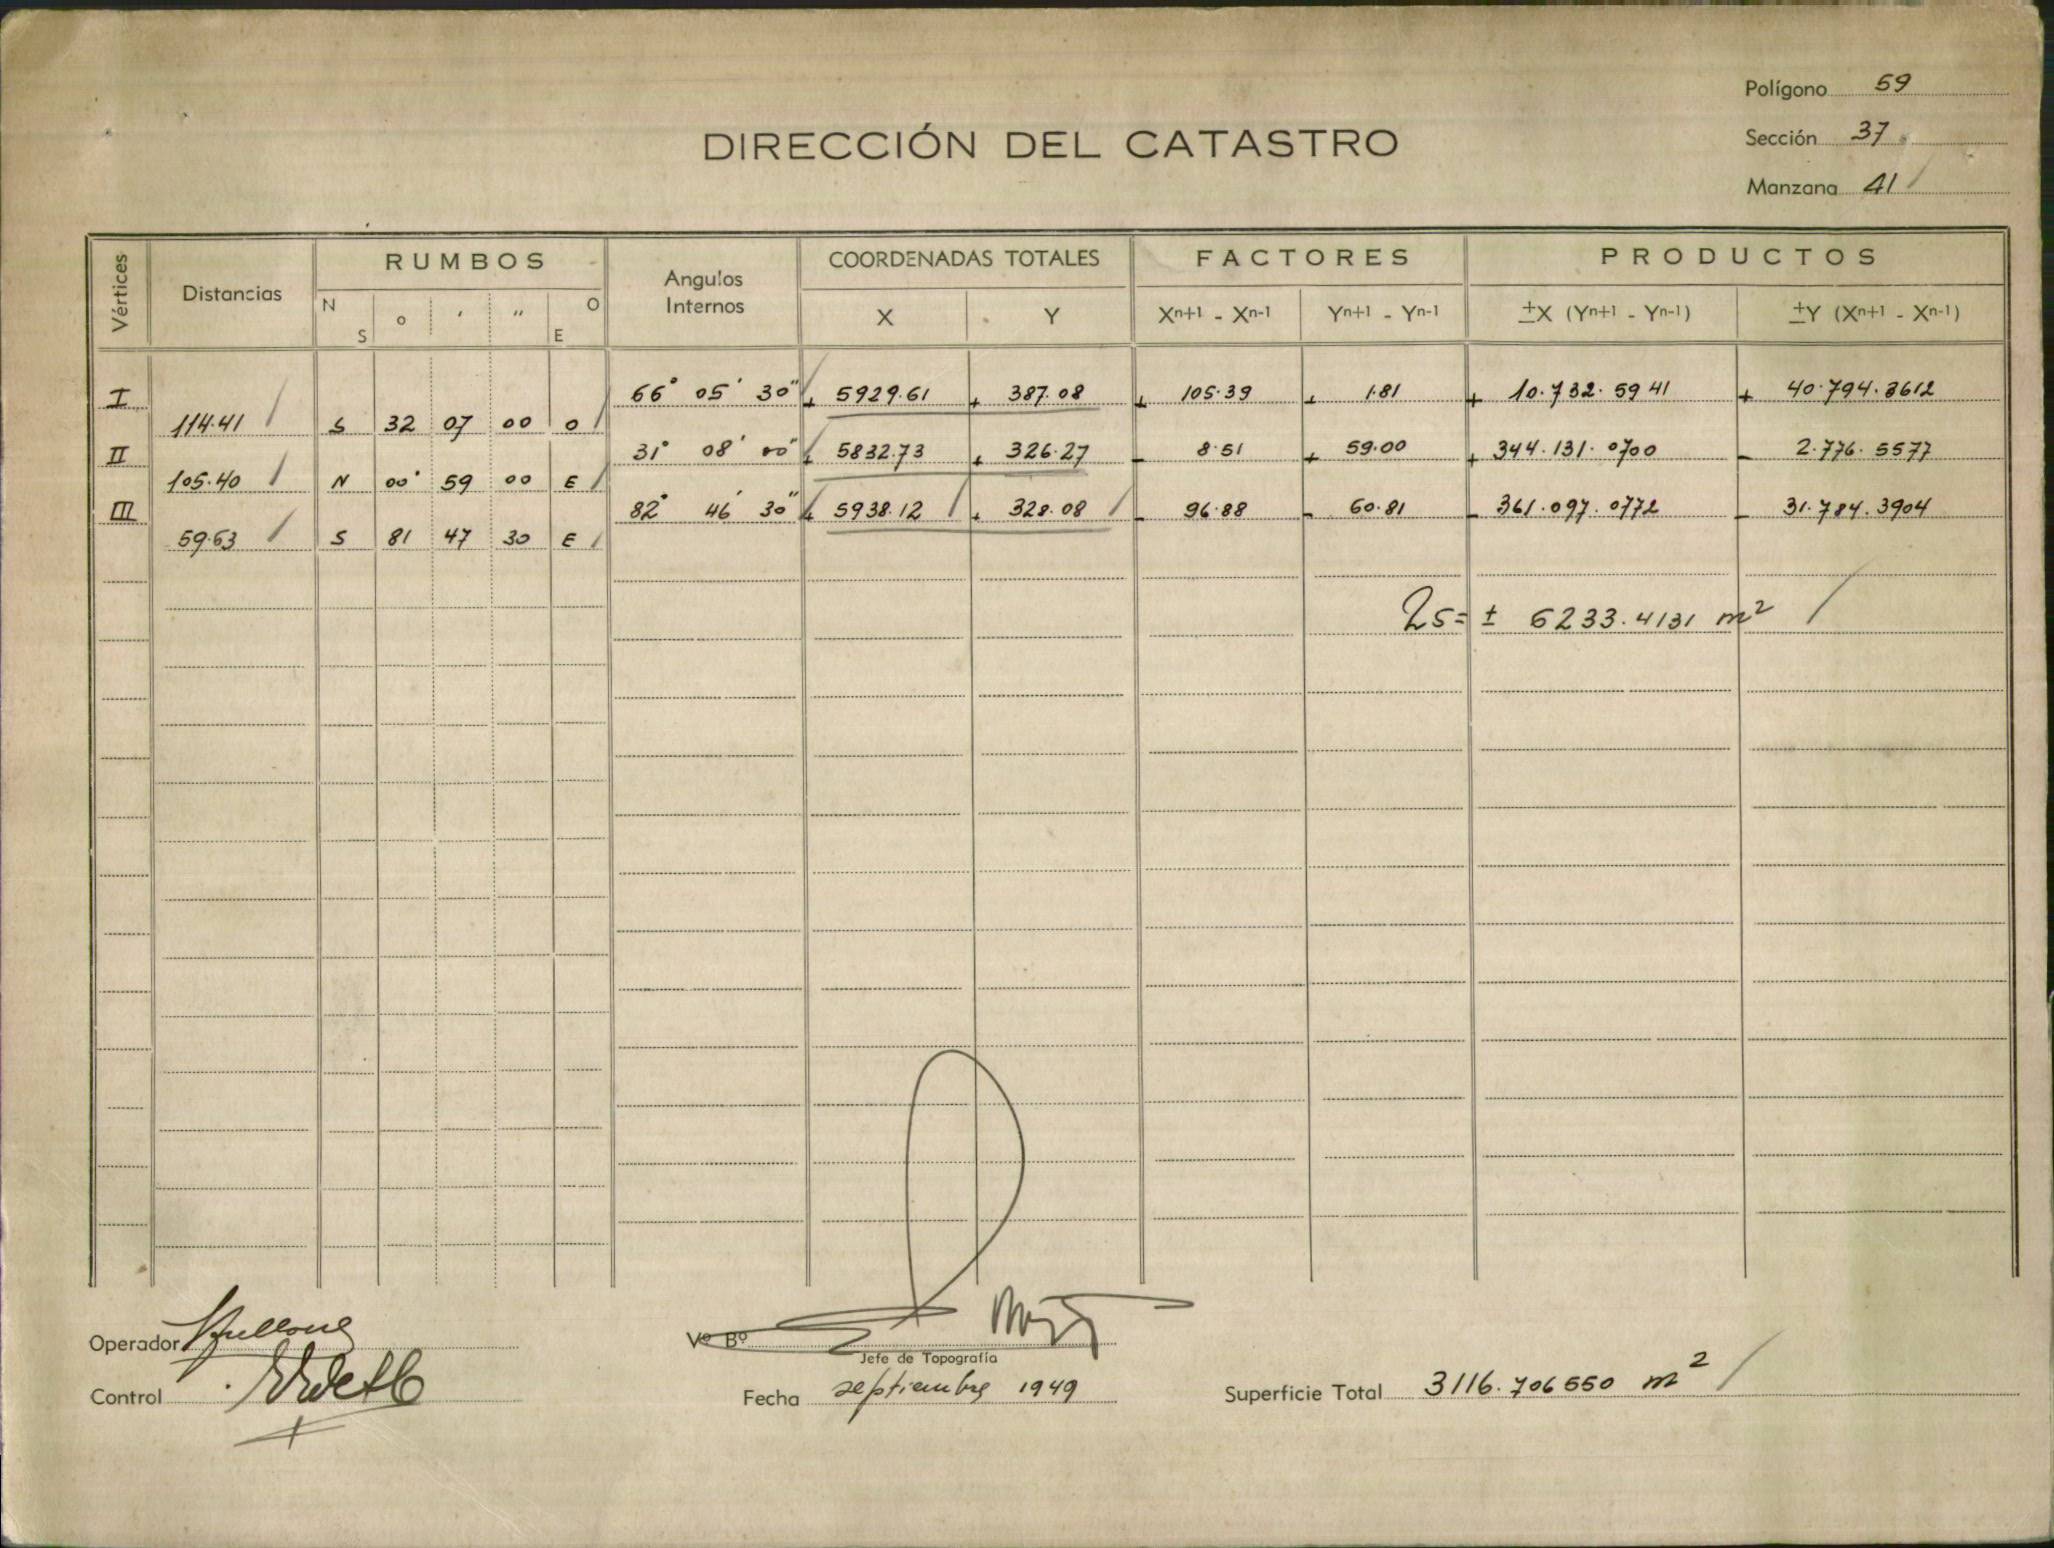 Polígono 59
DIRECCIÓN DEL CATASTRO
Sección 37
Manzana 41
Vértices Distancias RUMBOS Angulos Internos COORDENADAS TOTALES FACTORES PRODUCTOS
N S o ' " O E X Y Xn+1 - Xn-1 Yn+1 - Yn-1 ±X (Yn+1 - Yn-1) ±Y (Xn+1 - Xn-1)
I 66° 05' 30" + 5929.61 + 387.08 + 105.39 + 1.81 + 10.732.5941 + 40.794.3612
114.41 S 32 07 00 O
II 31° 08' 00" + 5832.73 + 326.27 - 8.51 + 59.00 + 344.131.0700 - 2.776.5577
105.40 N 00° 59 00 E
III 82° 46' 30" + 5938.12 + 328.08 - 96.88 - 60.81 - 361.097.0772 - 31.784.3904
59.63 S 81 47 30 E
2s= ± 6233.4131 m²
Operador
Vº Bº
Jefe de Topografía
Control
Fecha septiembre 1949
Superficie Total 3116.706550 m²